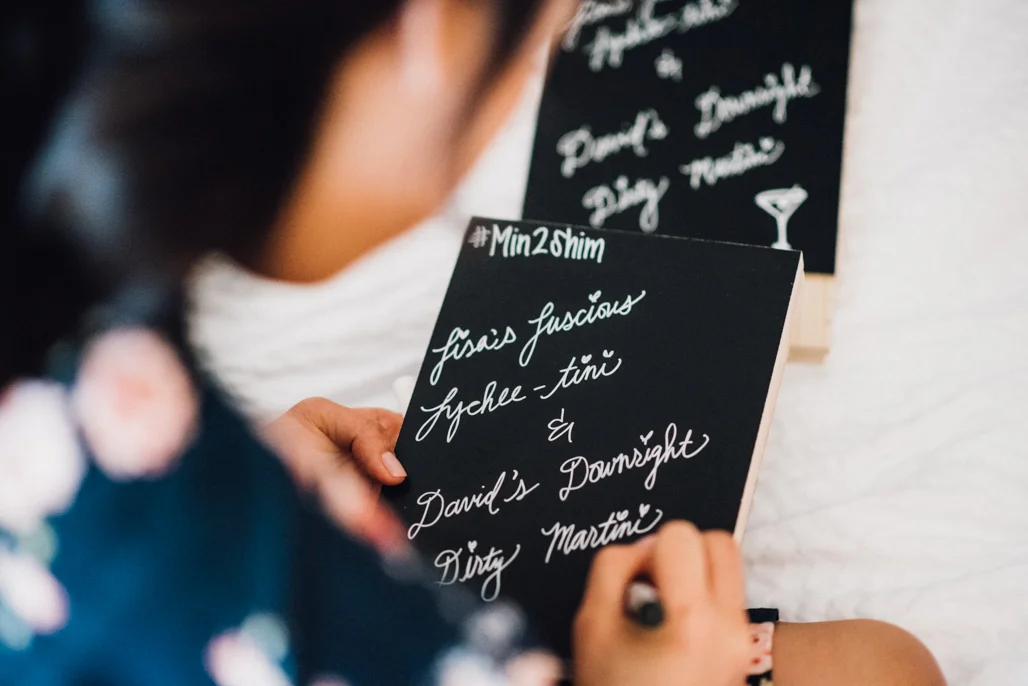 Lychee-tini
&
David's Downright
Dirty Martini
#Min2Shim
Lisa's Luscious
Lychee-tini
&
David's Downright
Dirty Martini